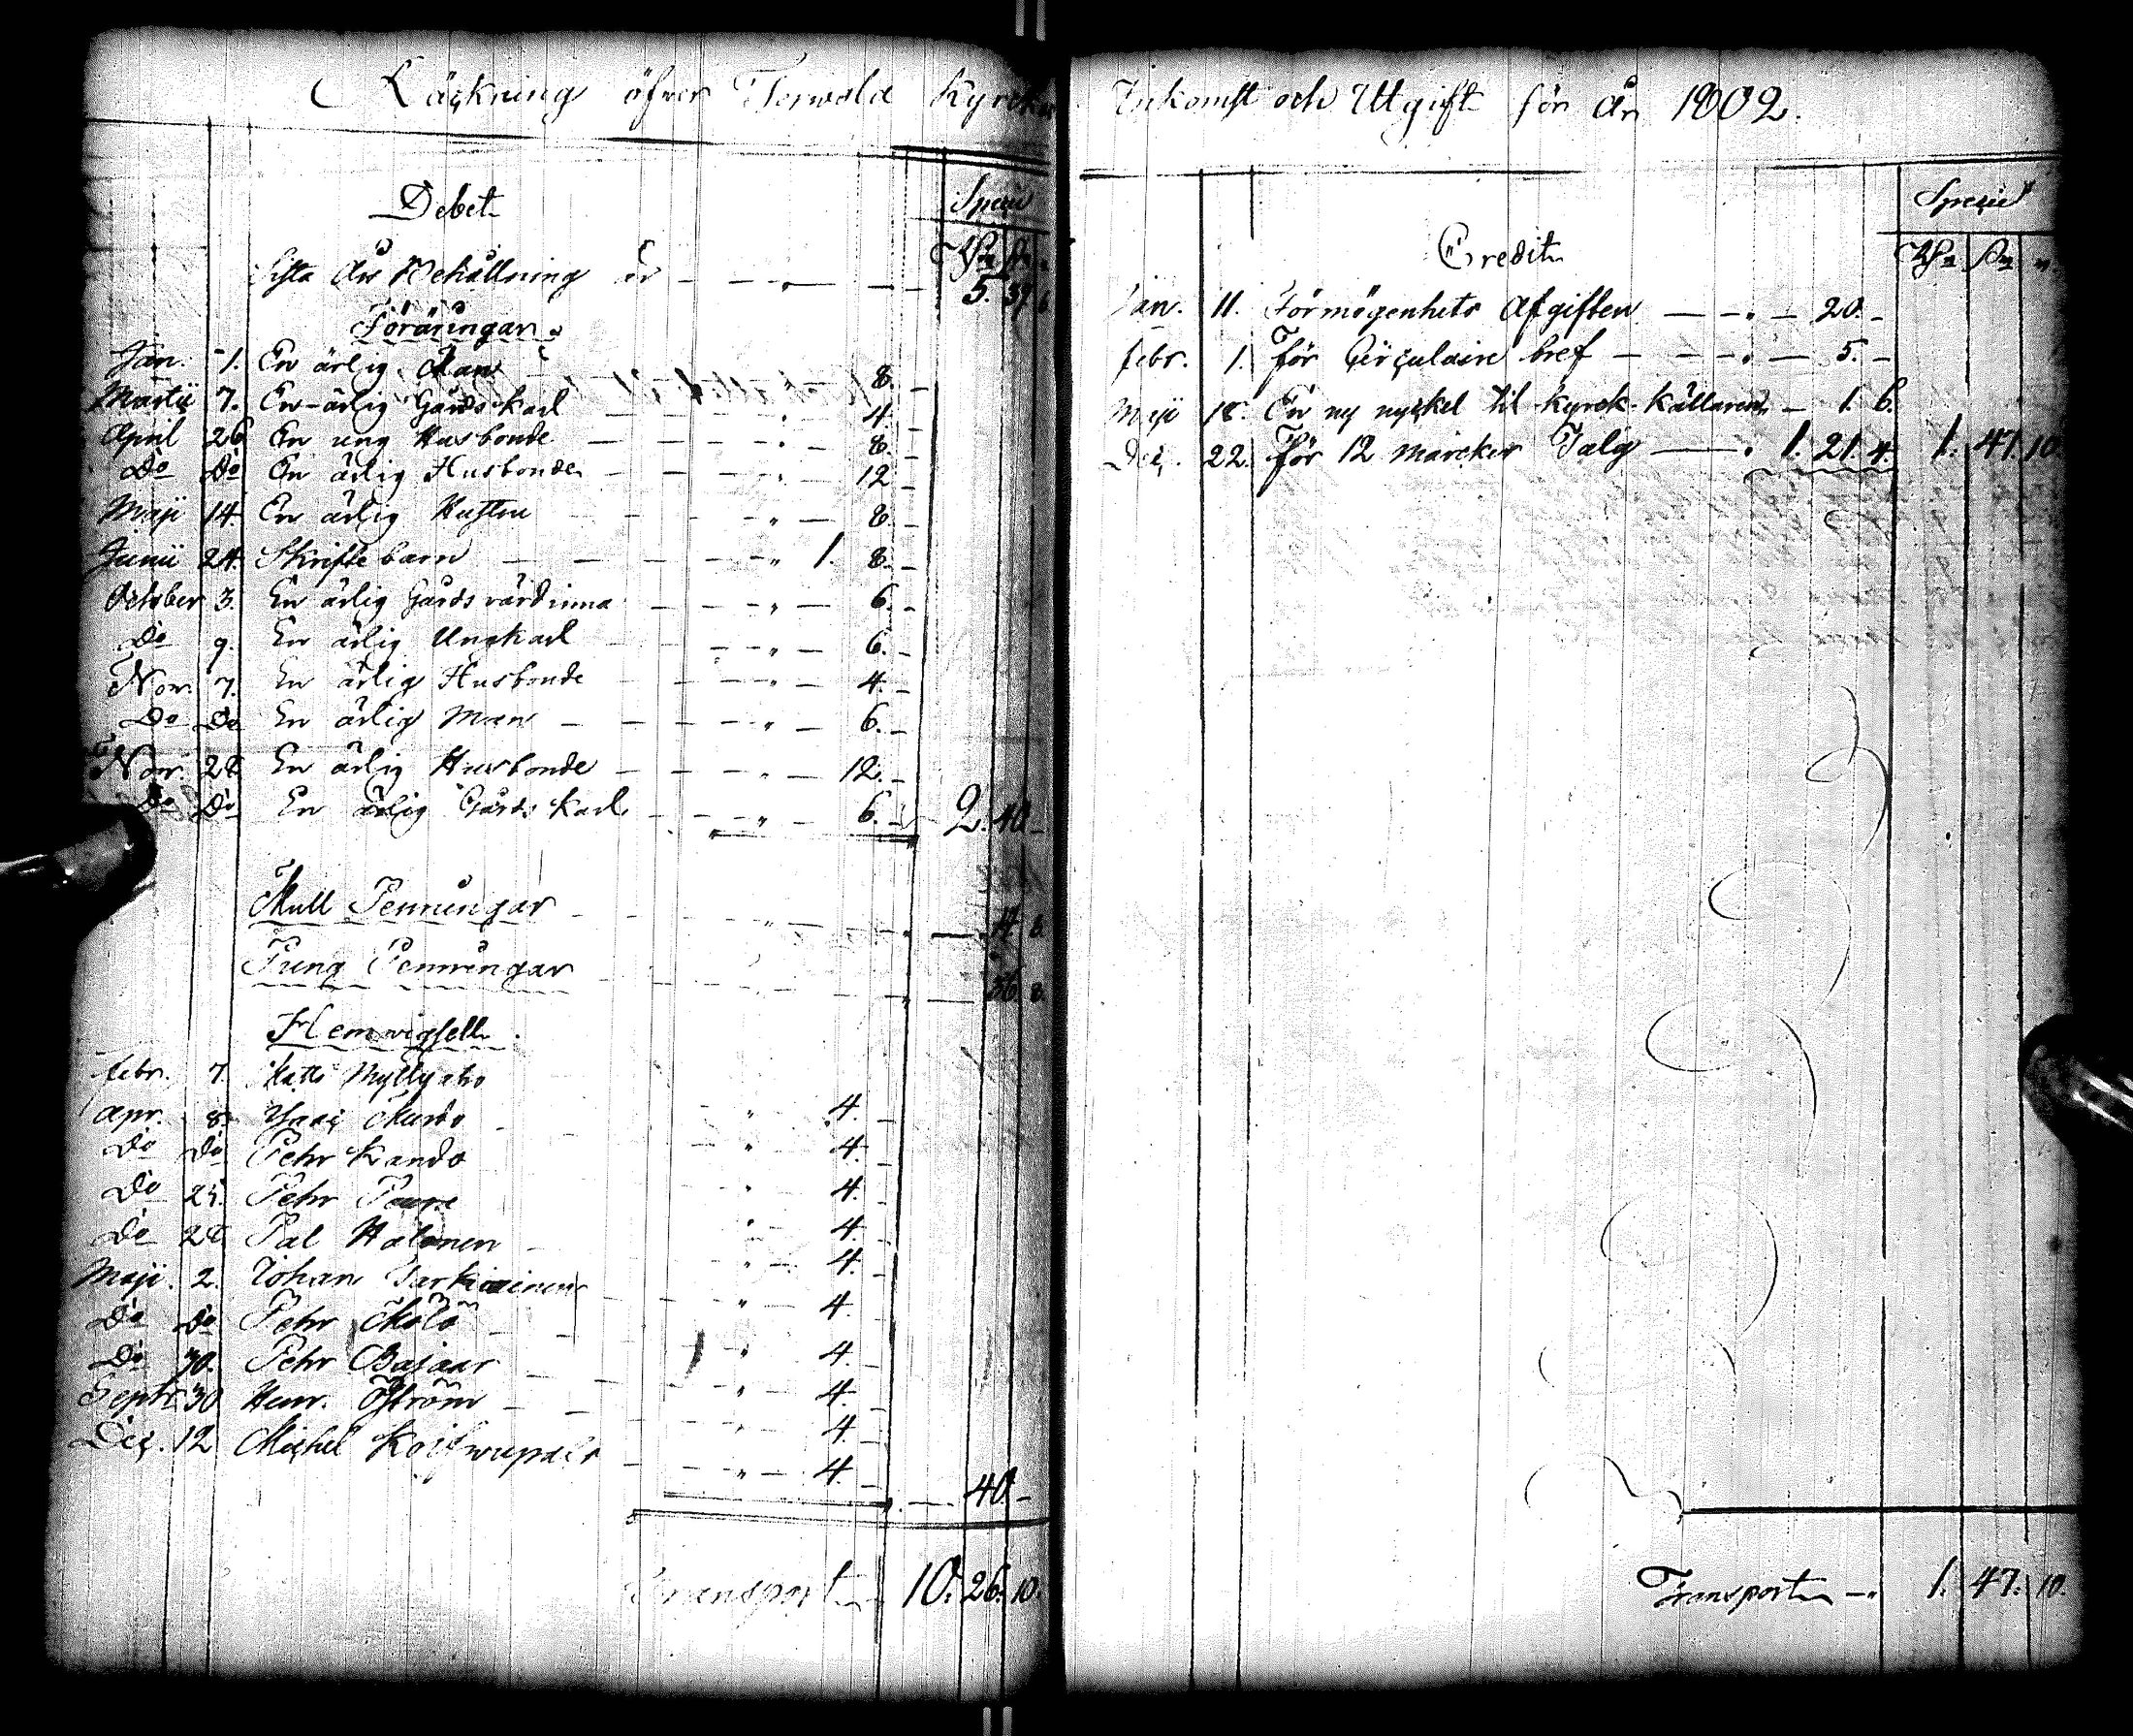 Räckning öfver Terwola Kyrckas
Debet
Specie
Sista Års Behållning är — — " — — 5. 37. 6
Föräringar
Jan. 1. En ärlig Man — 8. —
Martii 7. En ärlig Gårds Karl — — — 4. —
April 26 En ung Husbonde — — — 8. —
Do Do En ärlig Husbonde — — " — 12 —
Maji 14 En ärlig Hustru — — — " — 8. —
Junii 24. Skriftebarn — — — — " 1. 8. —
October 3. En ärlig Gårds värdinna — — — " — 6. —
Do 9. En ärlig Ungkarl — — — " — 6. —
Nov. 7. En ärlig Husbonde — — — " — 4. —
Do Do En ärlig Man — — — — " — 6. —
Nov. 28 En ärlig Husbonde — — — " — 12. —
Do Do En ärlig Gårds Karl — — — " — 6. — 2. 40 —
Mull Penningar — — — " — 14. 8.
Pung Penningar — — — " — 36. 8.
Hemvigsell.
Febr. 7. Matts Myllyaho
Apr. 8. Isaac — " — 4. —
Do Do Pehr Kando — " — 4. —
Do 25. Pehr — " — 4. —
Do 28 Pal Halonen — " — 4. —
Maji. 2. Johan Parkiainen — " — 4. —
Do Do Pehr — " — 4. —
Do 30. Pehr Bajaar — " — 4. —
Septr. 30 Henr. Öström — — " — 4. —
Dec. 12 Michel — " — 4. —
— " — 4. — 40 —
Transport 10. 26. 10.
Inkomst och Utgift för år 1802.
Credit
Specie
Jan. 11. Förmögenhets Afgiften — — " — 20. —
Febr. 1. För Circulaire bref — — — " — 5. —
Maji 18. En ny nyckel til kyrck-källaren — 1. 6.
Dec. 22. För 12 Marcker Talg — " 1. 21. 4. 1. 47. 10.
Transport — " 1. 47. 10.